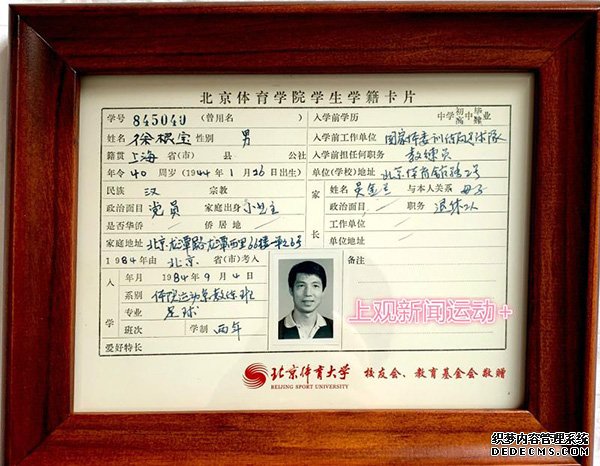 北京体育学院学生学籍卡片
学号 845049 (曾用名) 入学前学历 中学初高中毕肄业
姓名 徐根宝 性别 男 入学前工作单位 国家体委训练局足球队
籍贯 上海 省(市) 县 公社 入学前担任何职务 教练员
年令 40 周岁(1944年1月26日出生) 单位(学校)地址 北京体育馆路2号
民族 汉 宗教 家长 姓名 吴金 与本人关系 母子
政治面目 党员 家庭出身 小业主 政治面目 / 职务 退休工人
是否华侨 / 侨居地 / 工作单位 /
家庭地址 北京龙潭路龙潭西里 单位地址 /
1984年由 北京 省(市)考入 备注
入学 年月 1984年9月4日
系别 体院运动系教练班
专业 足球
班次 学制 两年
爱好特长
上观新闻运动+
北京体育大学 校友会、教育基金会敬赠
BEIJING SPORT UNIVERSITY
织梦内容管理系统
DEDECMS.COM